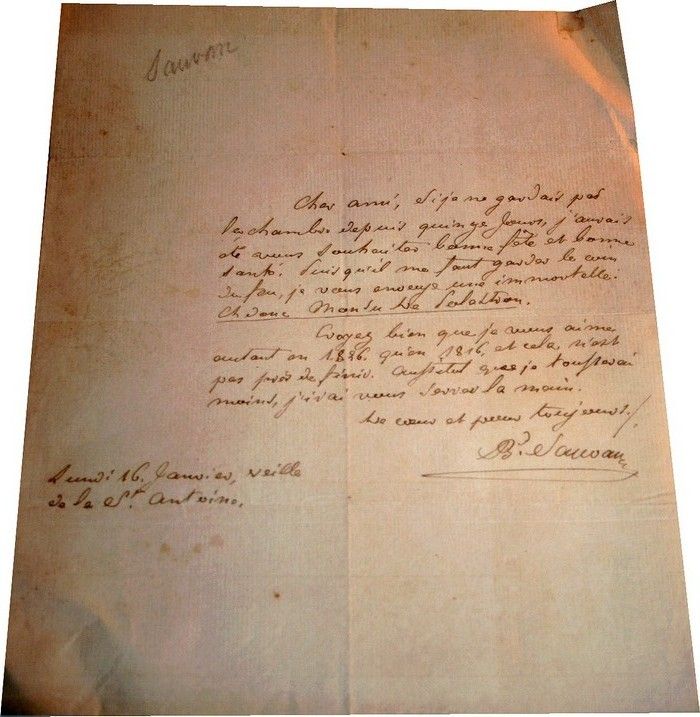 Sauvan
Cher ami, si je ne gardais pas
la chambre depuis quinze jours, j'aurais
été vous souhaiter bonne fête et bonne
santé. Puisqu'il me faut garder le coin
du feu, je vous envoye une immortelle.
de
Croyez bien que je vous aime
autant en 1826. qu'en 1816. et cela n'est
pas près de finir. Aussitot que je tousserai
moins, j'irai vous serrer la main.
De cœur et pour toujours.
Bt. Sauvan
Lundi 16. Janvier, veille
de la St. Antoine.